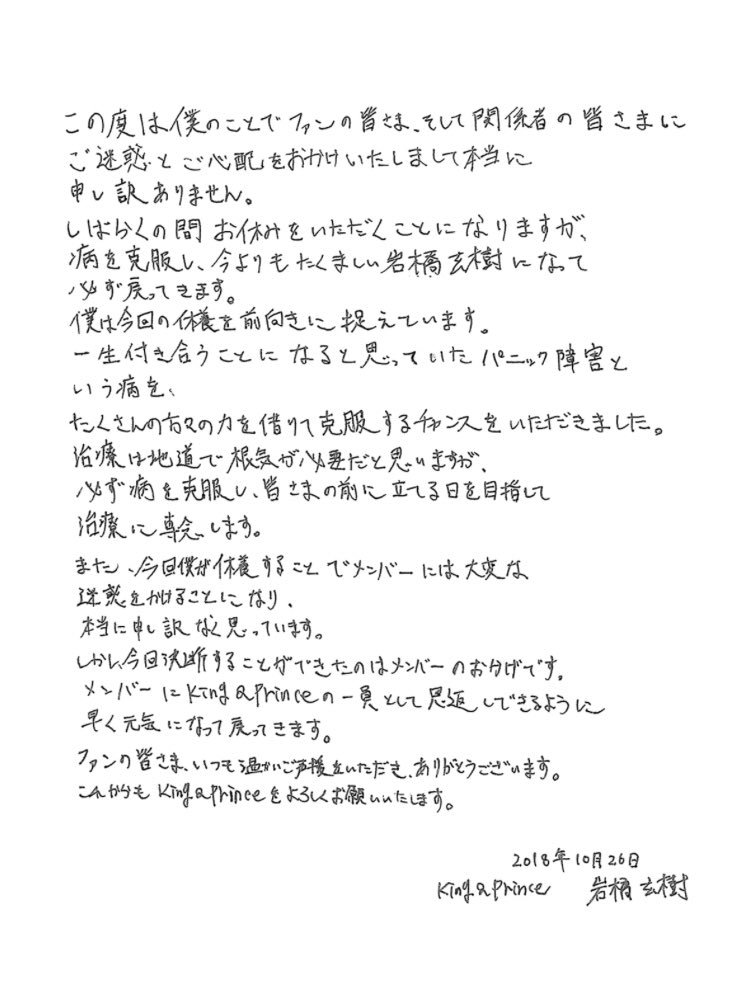 この度は僕のことでファンの皆さま、そして関係者の皆さまに
ご迷惑とご心配をおかけいたしまして本当に
申し訳ありません。
しばらくの間お休みをいただくことになりますが、
病を克服し、今よりもたくましい岩橋玄樹になって
必ず戻ってきます。
僕は今回の休養を前向きに捉えています。
一生付き合うことになると思っていたパニック障害と
いう病を、
たくさんの方々の力を借りて克服するチャンスをいただきました。
治療は地道で根気が必要だと思いますが、
必ず病を克服し、皆さまの前に立てる日を目指して
治療に専念します。
また、今回僕が休養することでメンバーには大変な
迷惑をかけることになり、
本当に申し訳なく思っています。
しかし今回決断することができたのはメンバーのおかげです。
メンバーにKing & Princeの一員として恩返しできるように
早く元気になって戻ってきます。
ファンの皆さま、いつも温かいご声援をいただき、ありがとうございます。
これからもKing & Princeをよろしくお願いいたします。
2018年10月26日
King & Prince 岩橋玄樹